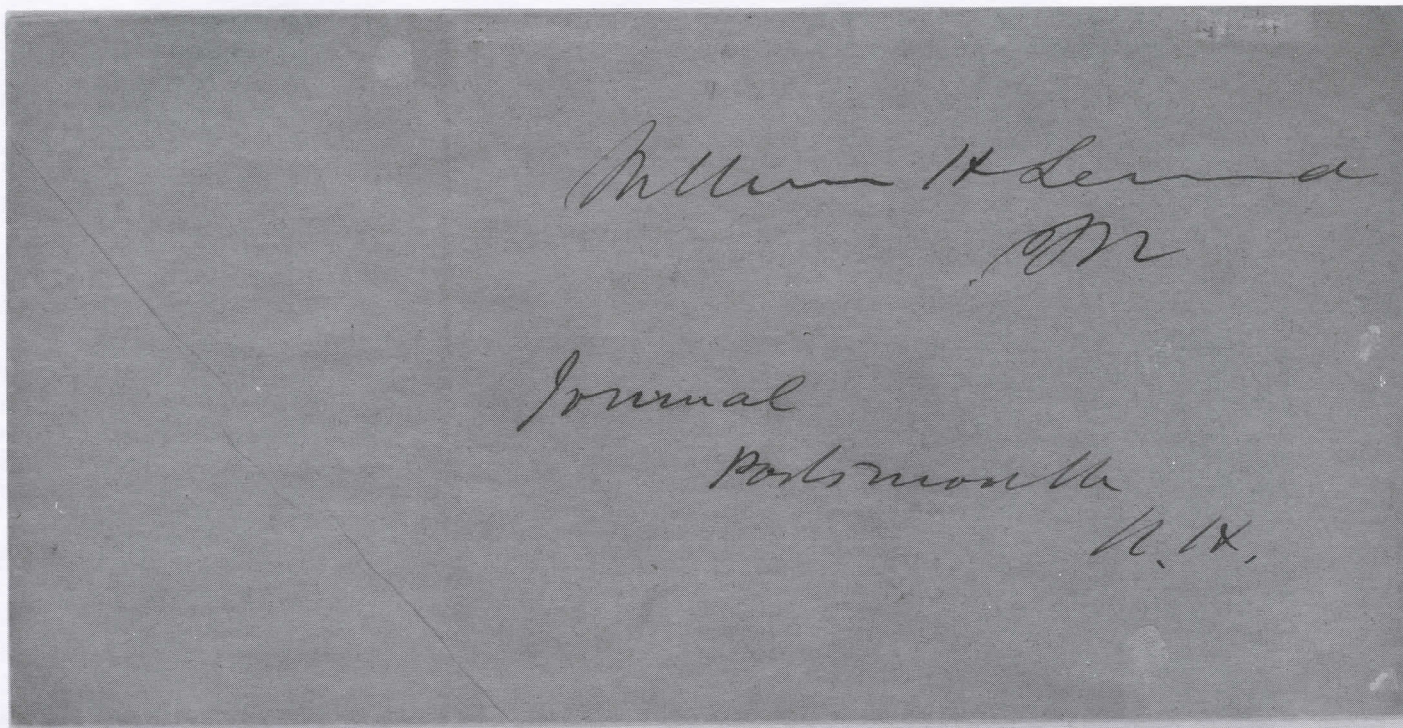 William H Seward
Journal
Portsmouth
N. H.